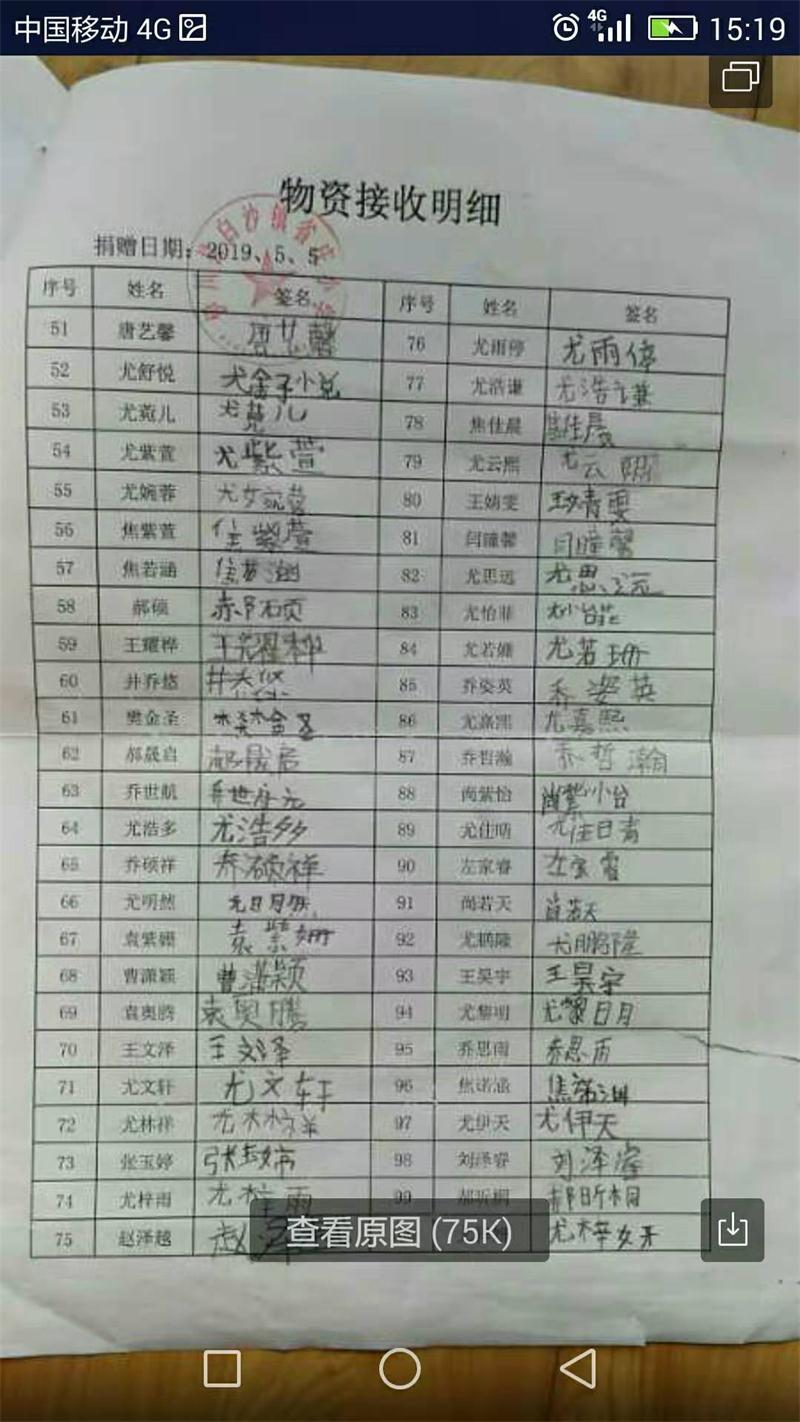 中国移动 4G 4G 15:19
物资接收明细
捐赠日期：2019、5、5
序号 姓名 签名 序号 姓名 签名
51 唐艺馨 唐艺馨 76 尤雨停 尤雨停
52 尤舒悦 尤舍予小兑 77 尤浩谦 尤浩谦
53 尤菀儿 尤菀儿 78 焦佳晨 焦佳晨
54 尤紫萱 尤紫萱 79 尤云熙 尤云熙
55 尤婉蓉 尤婉蓉 80 王婧雯 王婧雯
56 焦紫萱 焦紫萱 81 闫瞳馨 闫瞳馨
57 焦若涵 焦若涵 82 尤思远 尤思远
58 郝硕 郝硕 83 尤怡菲
59 王耀桦 王耀桦 84 尤若姗 尤若珊
60 井乔悠 85 乔姿英 乔姿英
61 樊金圣 樊金圣 86 尤熙 尤嘉熙
62 郝晟启 郝晟启 87 乔哲瀚 乔哲瀚
63 乔世航 乔世航 88 尚紫怡 尚紫怡
64 尤浩多 尤浩多 89 尤佳晴 尤佳晴
65 乔硕祥 乔硕祥 90 左家睿 左家睿
66 尤明然 尤明然 91 尚若天 尚若天
67 袁紫姗 袁紫姗 92 尤鹏隆 尤鹏隆
68 曹潇颖 曹潇颖 93 王昊宇 王昊宇
69 袁奥腾 袁奥腾 94 尤黎明 尤黎明
70 王文泽 王文泽 95 乔思雨 乔思雨
71 尤文轩 尤文轩 96 焦诺涵 焦诺涵
72 尤林祥 尤林祥 97 尤伊天 尤伊天
73 张玉婷 张玉婷 98 刘泽睿 刘泽睿
74 尤梓雨 尤梓雨 99 郝昕桐 郝昕桐
75 赵泽越 赵泽 尤梓妍
查看原图 (75K)